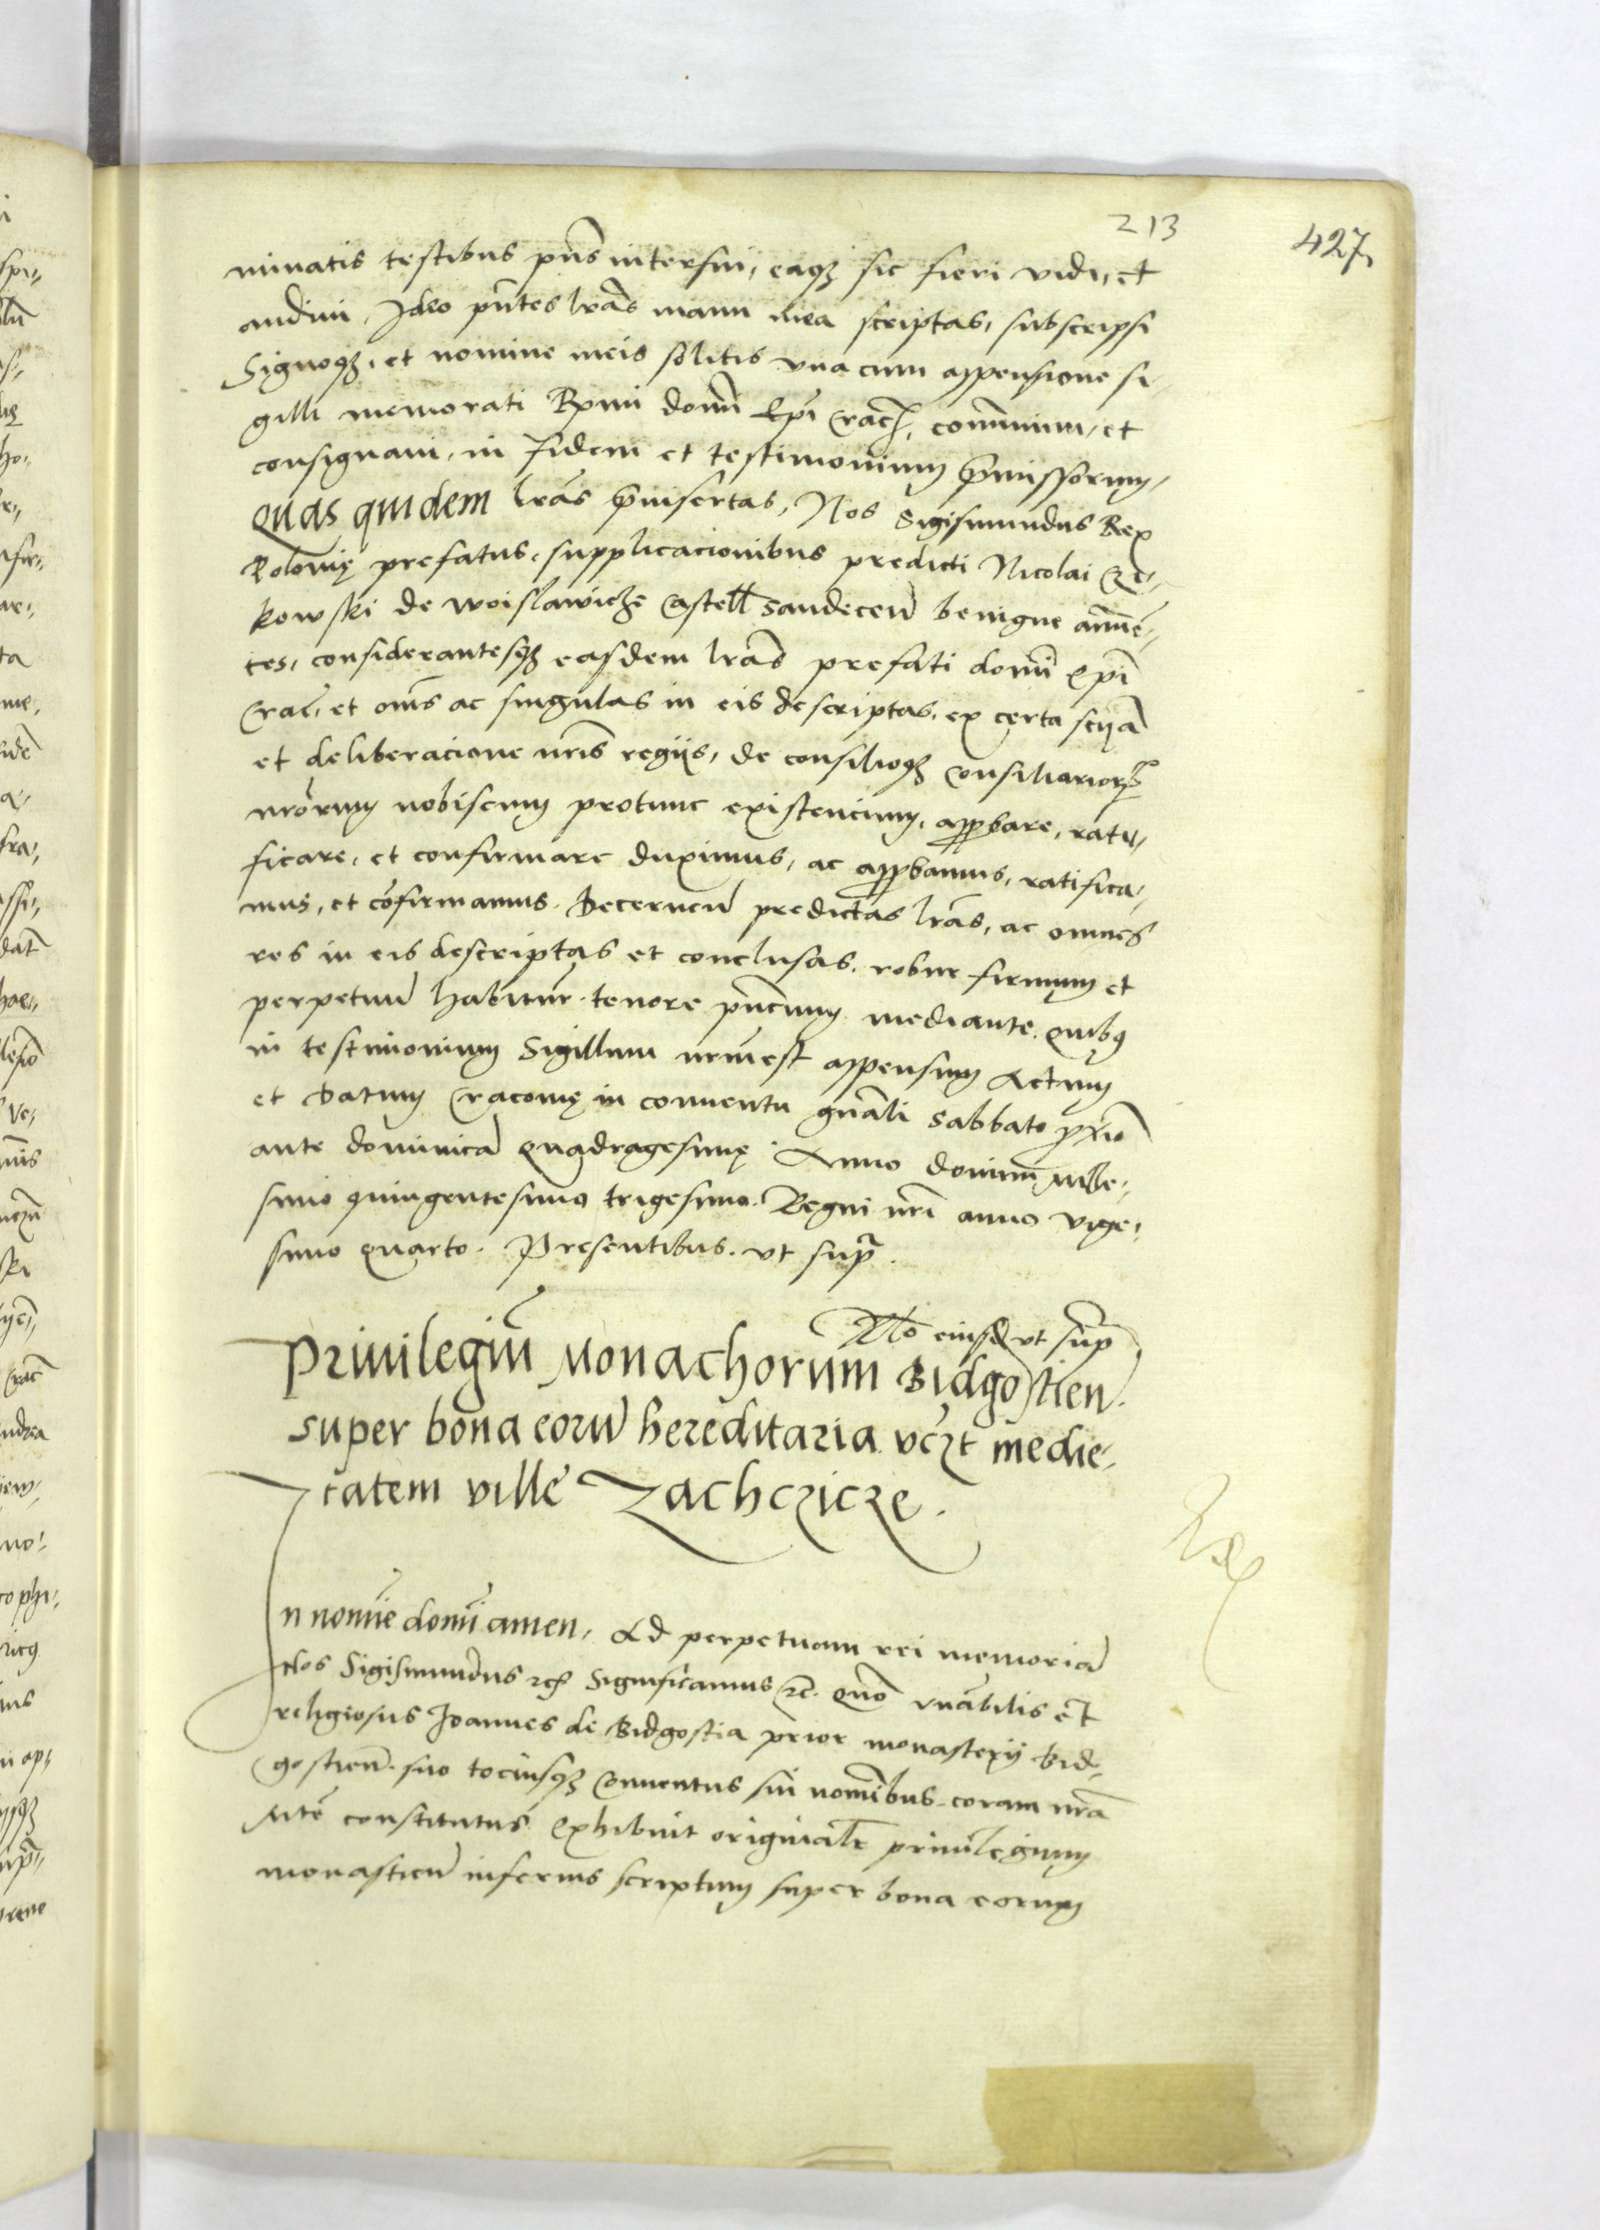 213
427
minatis testibus pñs interfui, eaqȝ sic fieri vidi, et
audivi, Ideo pñtes lrãs manu mea scriptas, subscripsi
Signoqȝ, et nomine meis solitis una cum appensione si-
gilli memorati Rymi domĩ Epĩ Crac, communivi, et
consignavi, in Fidem et testimonium p̃missorum,
Quas quidem lrãs p̃insertas, Nos Sigismundus Rex
Polonię prefatus, supplicacionibus predicti Nicolai
kowski de Woislawicze Castell Sandeceñ benigne annuẽ-
tes, considerantesqȝ easdem lrãs prefati domĩ Epĩ
Crac̃, et om̃s ac singulas in eis descriptas, ex certa sciã
et deliberacione nr̃is regiis, de consilioqȝ consiliarior
nrõrum nobiscum protunc existencium, approbare, rati-
ficare, et confirmare duximus, ac approbamus, ratifica-
mus, et cõfirmamus. Decerneñ predictas lrãs, ac omnes
res in eis descriptas et conclusas, robur firmum et
perpetuũ habitur̃. tenore pñcium mediante. Quibus
in testimonium Sigillum nrũ est appensum Actum
et Datum Cracovię in conventu gñali Sabbato pxio
ante dominicã Quadragesimę. Anno domini Mille-
simo quingentesimo trigesimo. Regni nr̃i anno vige-
simo quarto. Presentibus. ut supra.
eiusd ut supra
Privilegiũ Monachorum Bidgostien.
super bona eorũ hereditaria vczt medie-
tatem ville Zachczicze.
In nomĩe domĩ amen, Ad perpetuam rei memoriã
Nos Sigismundus etc Significamus etc. quõ vnãbilis et
religiosus Joannes de Bidgostia prior monasterii Bid-
gostieñ. suo tociusqȝ Conventus sui nomĩbus. coram nrã
Mtẽ constitutus Exhibuit originale privilegium
monastieñ inferius scriptum super bona eorum